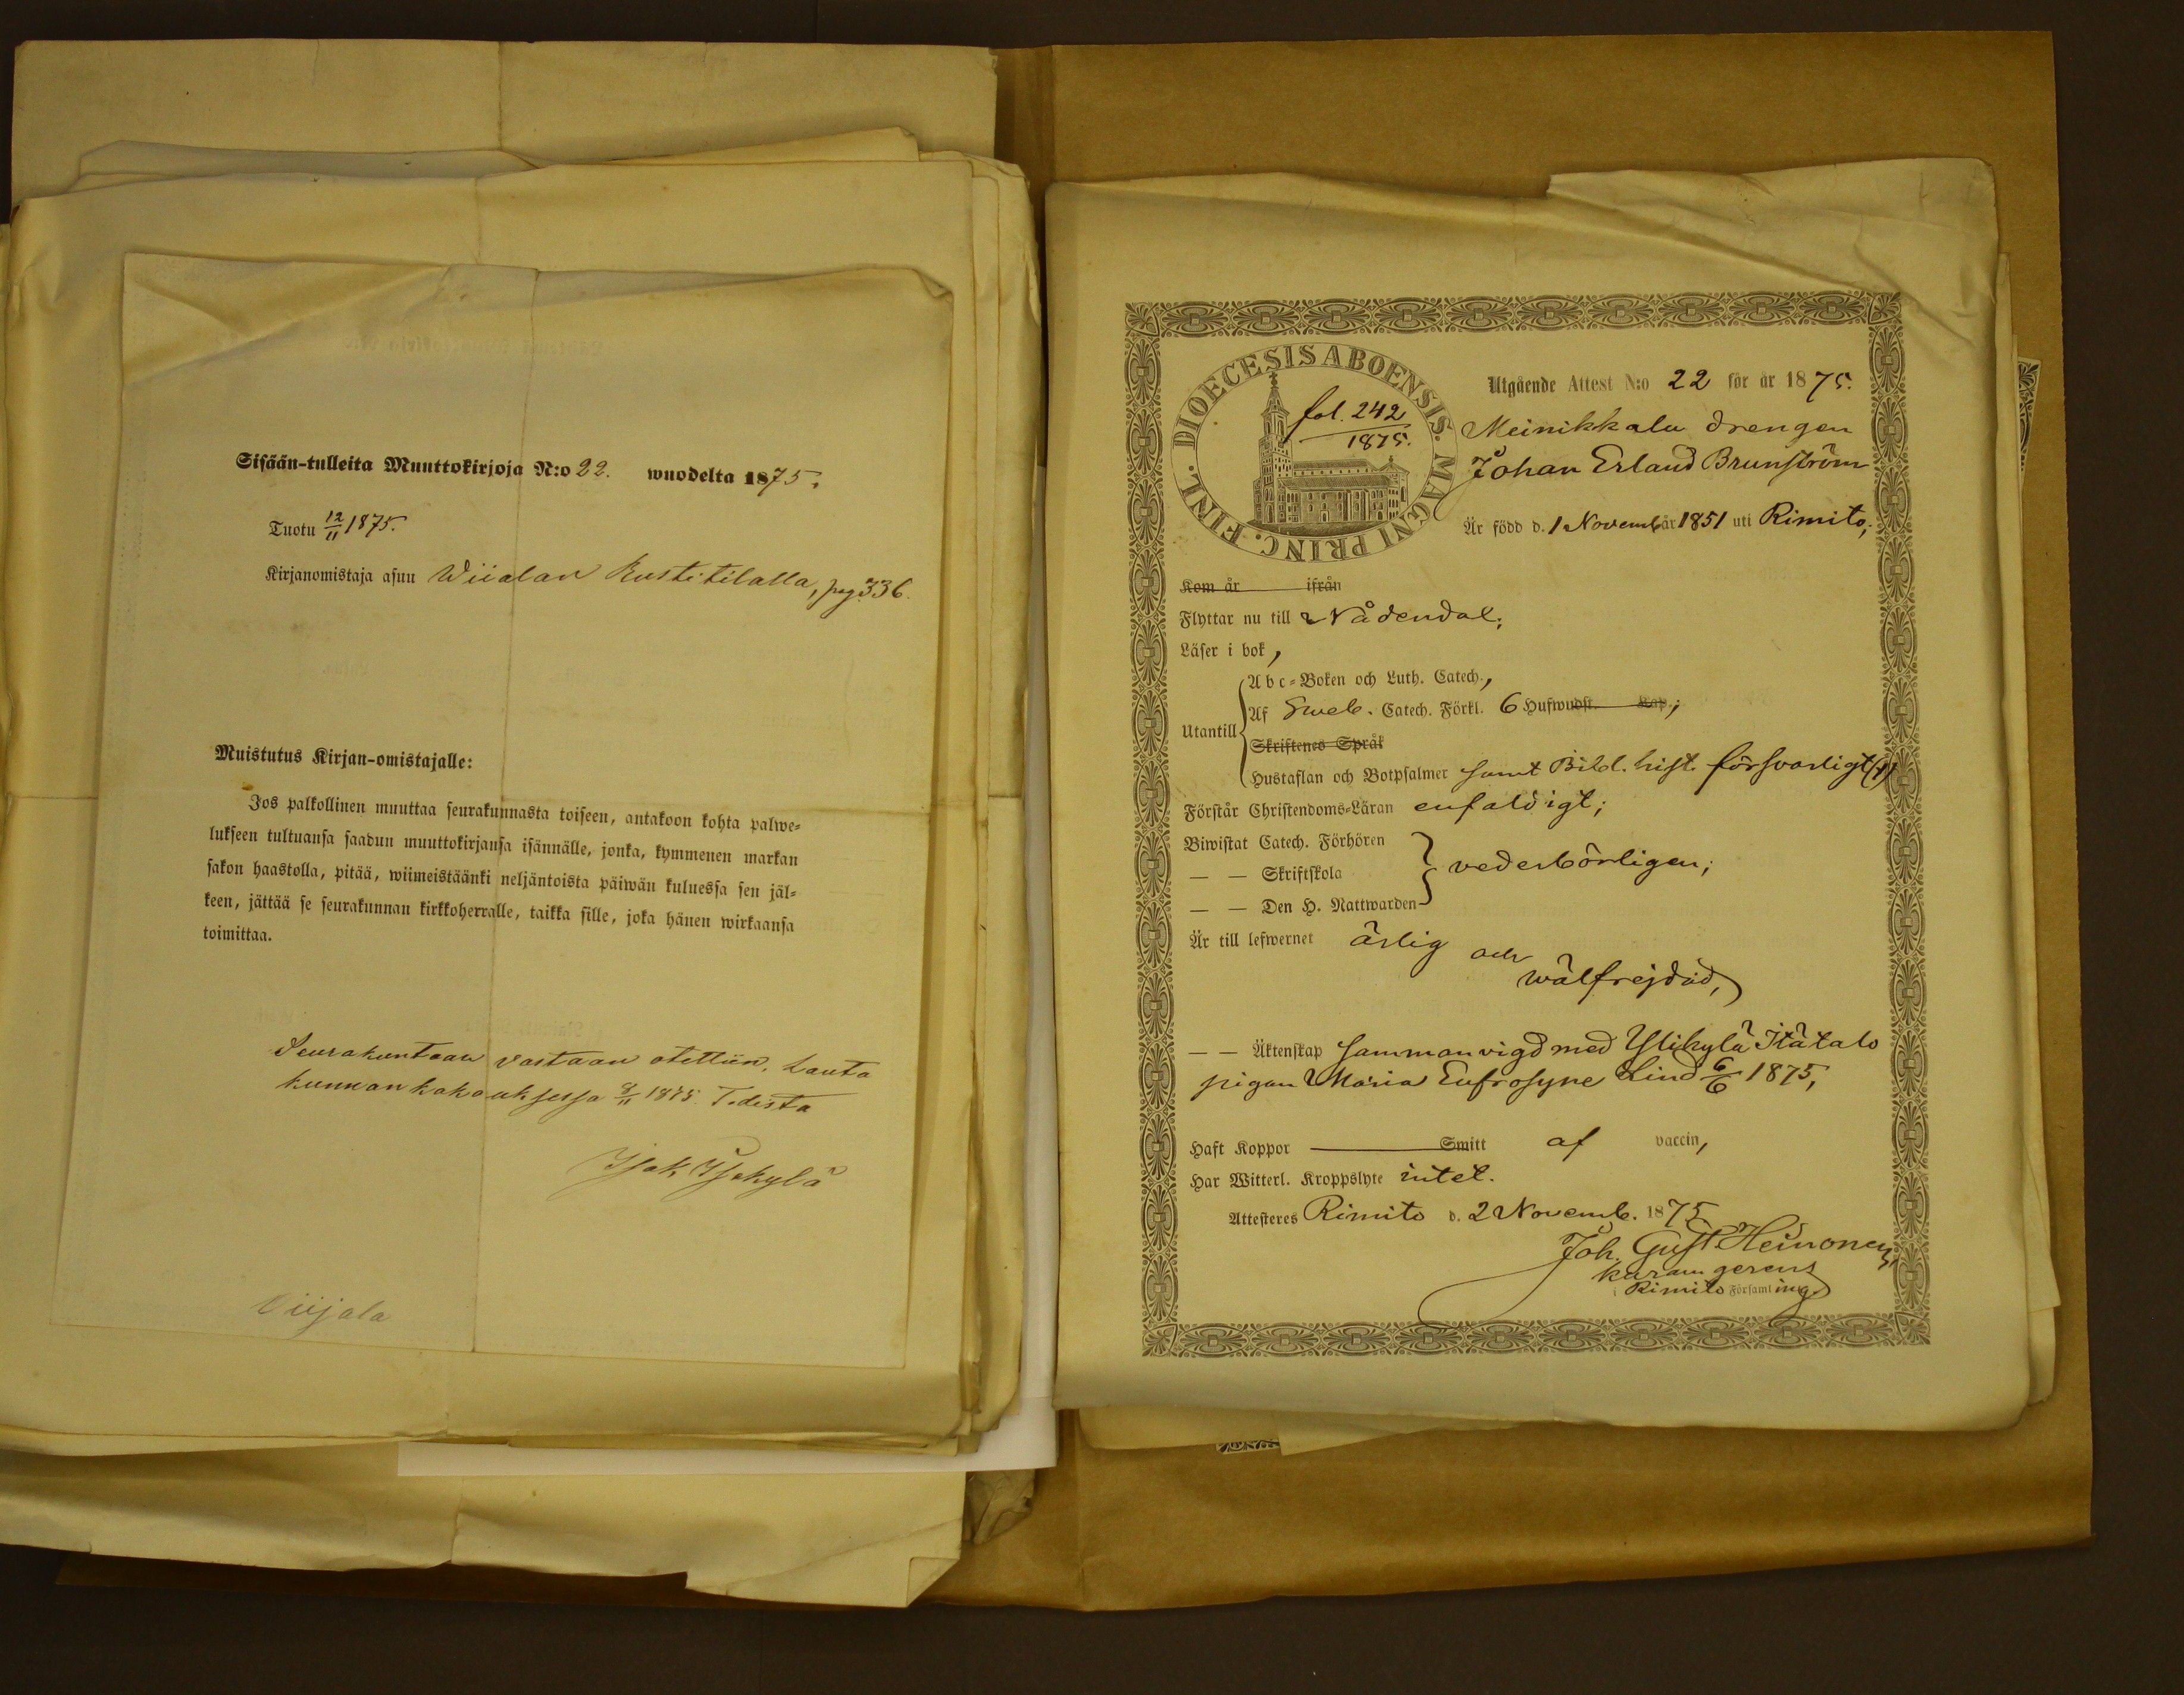 Sisään-tulleita Muuttokirjoja N:o 22. wuodelta 1875.
Tuotu 12/11 1875.
Kirjanomistaja asuu Wiialan Rustitilalla, pag 336.
Muistutus Kirjan-omistajalle:
Jos palkollinen muuttaa seurakunnasta toiseen, antakoon kohta palwe=
lukseen tultuansa saadun muuttokirjansa isännälle, jonka, kymmenen markan
sakon haastolla, pitää, wiimeistäänki neljäntoista päiwän kuluessa sen jäl=
keen, jättää se seurakunnan kirkkoherralle, taikka sille, joka hänen wirkaansa
toimittaa.
Seurakuntaan vastaan otettiin, Lauta
kunnan kokouksessa 8/11 1875. Todista
Isak Isokylä
Viijala
DIOECESIS ABOENSIS. MAGNI PRINC. FINL.
fol. 242
1875.
Utgående Attest N:o 22 för år 1875.
Meinikkala drengen
Johan Erland Brunström
Är född d. 1 Novemb år 1851 uti Rimito;
Kom år ifrån
Flyttar nu till Nådendal;
Läser i bok,
Utantill
Abc=Boken och Luth. Catech.,
Af Sweb. Catech. Förkl. 6 Hufwudst. Kap.;
Skriftenes Språk
Hustaflan och Botpsalmer samt Bibl. hist. försvarligt (+)
Förstår Christendoms=Läran enfaldigt;
Biwistat Catech. Förhören
— — Skriftskola vederbörligen;
— — Den H. Nattwarden
Är till lefwernet ärlig och
wälfrejdad,
— — Äktenskap sammanvigd med Ylikylä Itätalo
pigan Maria Eufrosyne Lind 6/6 1875,
Haft Koppor Smitt af vaccin,
Har Witterl. Kroppslyte intet.
Attesteres Rimito d. 2 Novemb. 1875
Joh. Gust. Heinonen,
kuram gerens
i Rimito Församling